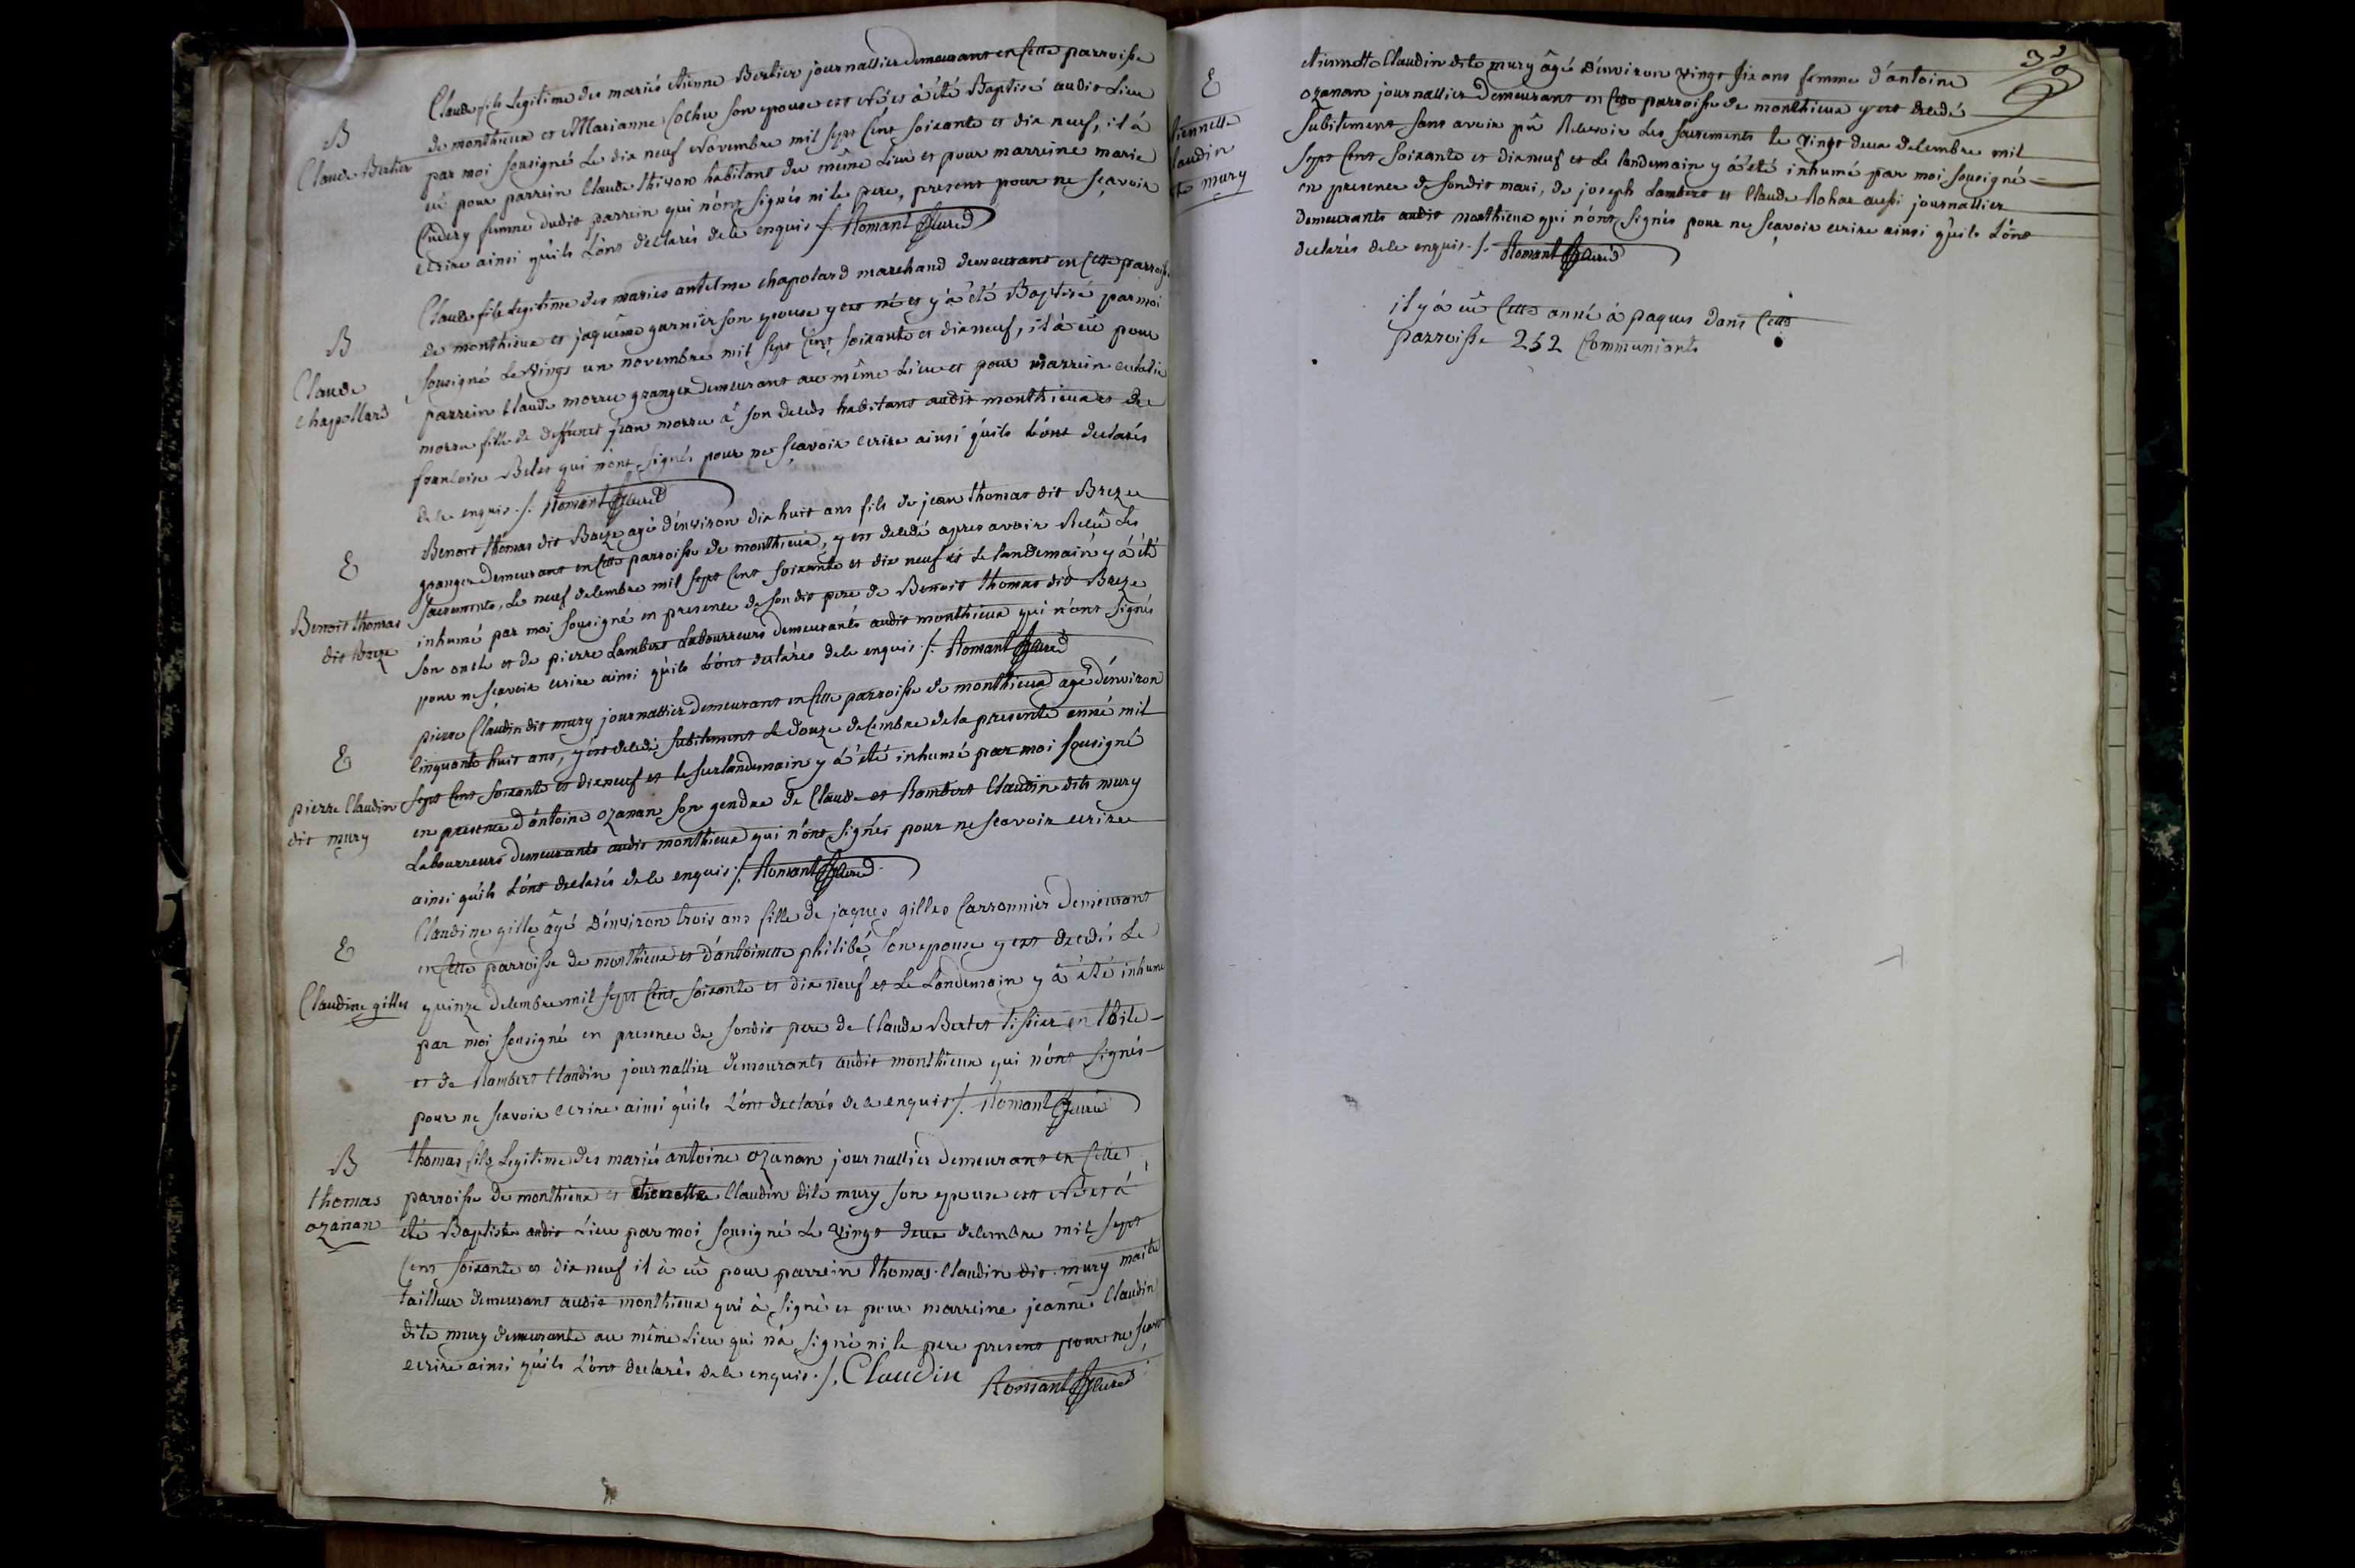 B
Claude Bertier
Claude fils Legitime des mariés etienne Bertier journallier demeurant en Cette parroisse
de monthieux et Marianne Cochu son epouse est Né et à été Baptisé audit Lieu
par moi sousigné Le dix neuf Novembre mil sept Cent soixante et dix neuf, il à
eû pour parrein Claude thivon habitant du même Lieu et pour marreine marie
femme dudit parrein qui n'ont signés ni le pere, present pour ne sçavoir
ecrire ainsi qu'ils L'ont declarés de ce enquis ./. Romant Curé
B
Claude
Chapollard
Claude fils Legitime des mariés antelme chapolard marchand demeurant en Cette parroisse
de monthieux et jaquême garnier son epouse y est né et y à été Baptisé par moi
sousigné Le Vingt un novembre mil sept Cent soixante et dix neuf, il à eû pour
parrein Claude morru granger demeurant au même Lieu et pour marrein
morru fille de deffunt jean morru à son deceds habitant audit monthieux et de
francoise Belet qui n'ont signés pour ne sçavoir ecrire ainsi qu'ils L'ont declarés
de ce enquis ./. Romant Curé
E
Benoit thomas
dit Breze
Benoit thomas dit Breze agé d'environ dix huit ans fils de jean thomas dit Breze
granger demeurant en Cette parroisse de monthieux, y est decedé apres avoir Recû Les
sacrements, Le neuf decembre mil sept Cent soixante et dix neuf et Le landemain y à été
inhumé par moi sousigné en presence de son dit pere de Benoit thomas dit Breze
son oncle et de pierre Lambert Labourreurs demeurants audit monthieux qui n'ont signés
pour ne sçavoir ecrire ainsi qu'ils L'ont declarés de ce enquis ./. Romant Curé
E
pierre Claudin
dit mury
pierre Claudin dit mury journallier demeurant en Cette parroisse de monthieux agé d'environ
Cinquante huit ans, y est decedé subitement Le Douze decembre de la presente anné mil
sept Cent soixante et dix neuf et le surlandemain y à été inhumé par moi sousigné
en presence d'antoine ozanan son gendre de Claude et Rambert Claudin dits mury
Labourreurs demeurants audit monthieux qui n'ont signés pour ne scavoir ecrire
ainsi qu'ils L'ont declarés de ce enquis ./. Romant Curé
E
Claudine gilles
Claudine gille âgé D'environ trois ans fille de jaques gilles Carronnier Demeurant
en Cette parroisse de monthieux et d'antoinette philibé son epouse y est decedé Le
quinze decembre mil sept Cent soixante et dix neuf et Le Landemain y à été inhumé
par moi sousigné en presence de sondit pere de Claude Bertet tissier en thoile
et de Rambert Claudin journallier demeurants audit monthieux qui n'ont signés
pour ne scavoir ecrire ainsi qu'ils L'ont declarés de ce enquis ./. Romant Curé
B
thomas
ozanan
thomas fils Legitime des mariés antoine ozanan journallier demeurant en Cette
parroisse de monthieux et etienette Claudin dite mury son epouse est Né et à
été Baptisé audit Lieu par moi sousigné Le Vingt deux decembre mil sept
Cent soixante et dix neuf il à eû pour parrein thomas Claudin dit mury maitre
tailleur demeurant audit monthieux qui à signé et pour marreine jeanne Claudin
dite mury demeurante au même Lieu qui n'à signé ni le pere present pour ne scavoir
ecrire ainsi qu'ils L'ont declarés de ce enquis ./. Claudin Romant Curé
E
tiennette
laudin
te mury
etiennette Claudin dite mury âgé d'environ vingt six ans femme d'antoine
ozanan journallier demeurant en Cette parroisse de monthieux y est decedé
subitement sans avoir pû Recevoir Les sacrements le Vingt deux decembre mil
sept Cent soixante et dix neuf et Le landemain y à été inhumé par moi sousigné
en presence de sondit mari, de joseph Lambert et Claude Rohar aussi journallier
demeurants audit monthieux qui n'ont signés pour ne scavoir ecrire ainsi qu'ils L'ont
declarés de ce enquis ./. Romant Curé
il y à eû Cette anné à paques dans Cette
parroisse 252 Communiants